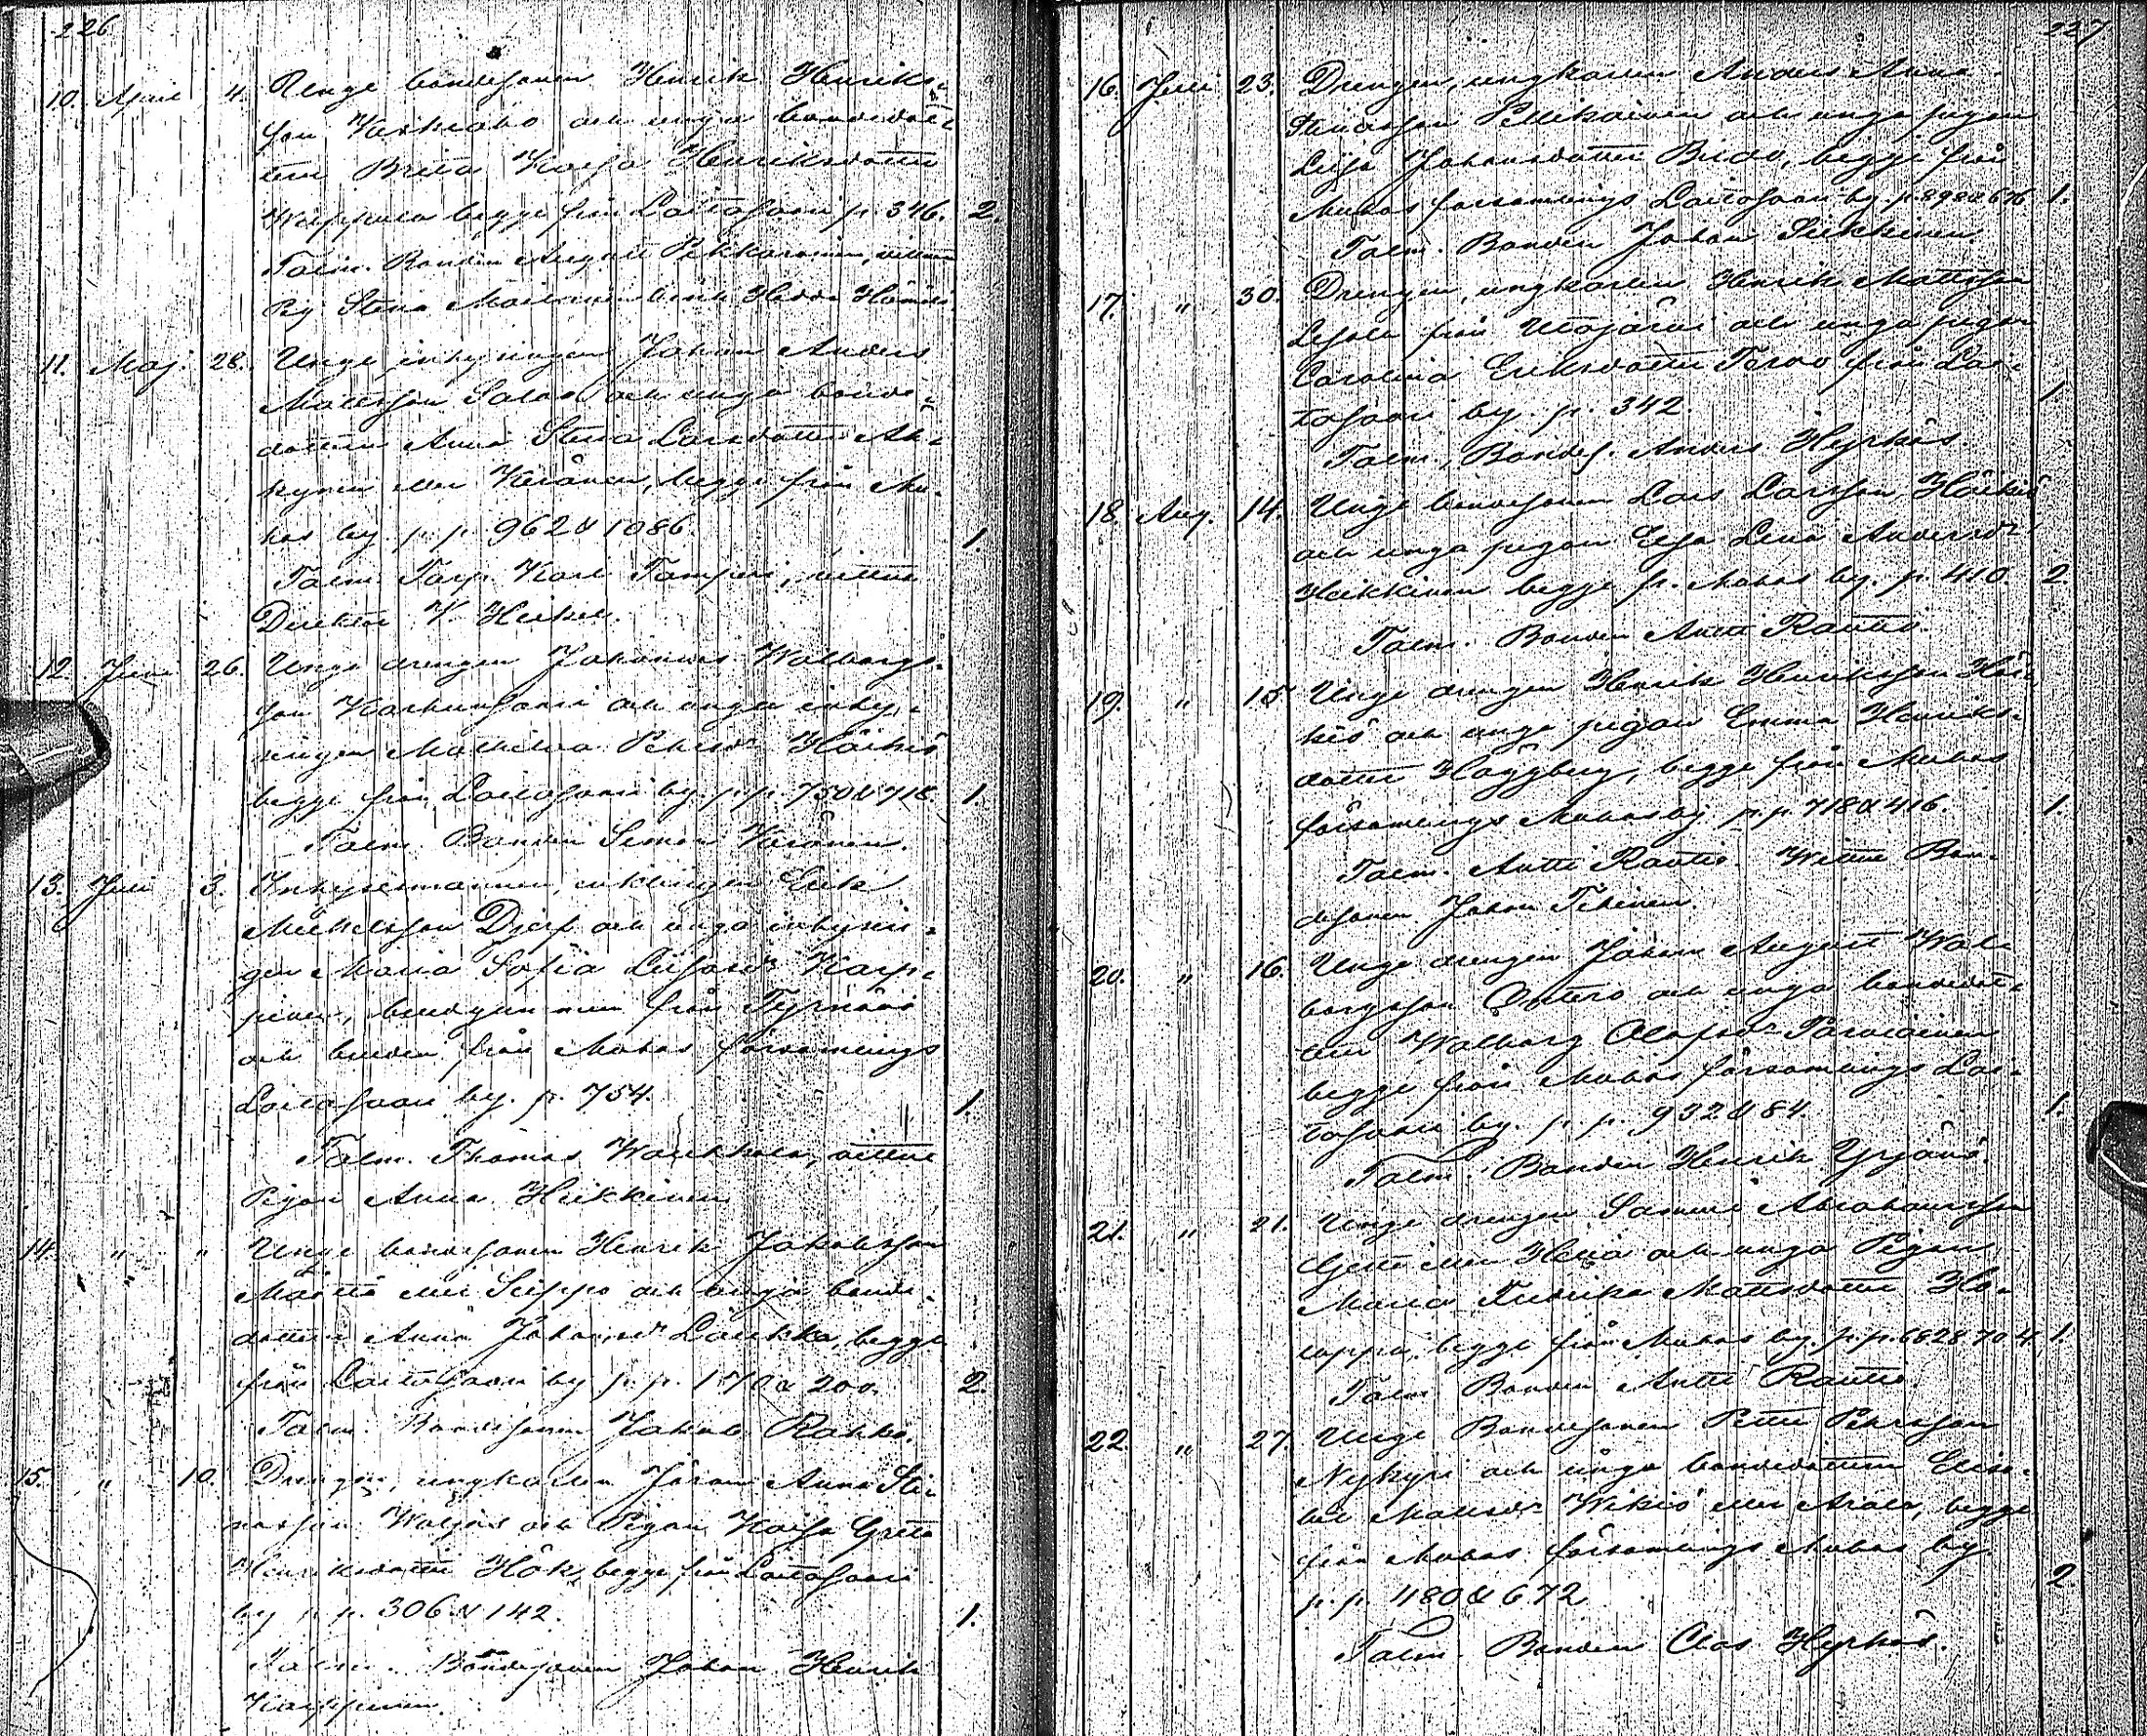 226
10. April 4. Unge bondesonen Henrik Henriks-
son Keskiaho och unga bondedot-
tern Brita Kaisa Henriksdotter
begge från Laitasaari p. 346. 2.
Talm. Bonden August Pikkarainen, vittne
Pig. Stina
11. Maj 28. Unge inhysingen Johan Anders
Mattsson Salao och unga bonde-
dottren Anna Stina Larsdotter Ah-
kynen eller Keränen, begge från Mu-
hos by. p. p. 962 & 1086. 1.
Talm. Torp. Karl Tamperi, vittne
Direktör V. Heikel.
12. Juni 26. Unge drengen Johannes Walborgs-
son Karhunsaari och unga inhy-
singen Mathilda Petersdr Häikiö
begge från Laitasaari by. p.p. 750 & 718. 1.
Talm. Bonden Simon Keränen.
13. Juli 3. Inhysesmannen, enklingen Erik
Mickelsson Djerf och unga inhysin-
gen Maria Sofia Lisasdr Karp-
pinen, brudgummen från Tyrnävä
och bruden från Muhos församlings
Laitasaari by. p. 754. 1.
Talm. Thomas Warikkala, vittne
Pigan Anna Heikkinen
14. " " Unge bondesonen Henrik Jakobsson
Määttä eller Seppo och unga bonde-
dottren Anna Johansdr Laukka, begge
från Laitasaari by p. p. 170 & 200. 2.
Talm. Bondesonen Jakob Rahko.
15. " 10. Drengen, ungkarlen Johan Anna Sti-
nasson Waljus och Pigan Kaisa Greta
Henriksdotter Hök, begge från Laitasaari
by p. p. 306 & 142. 1.
Talm. Bondesonen Johan Henrik
Karppinen.
227
16. Juli 23. Drengen, ungkarlen Anders Anna
Stinasson Pellikainen och unga pigan
Lisa Johansdotter Budo, begge från
Muhos församlings Laitasaari by. p. 898 & 676 1.
Talm. Bonden Johan Siekkinen.
17. " 30. Drengen, ungkarlen Henrik Mattsson
från Utajärvi och unga pigan
Carolina Eriksdotter Tervo från Lai-
tasaari by. p. 342. 1
Talm., Bondes. Anders Hyrkäs.
18. Aug. 14. Unge bondesonen Lars Larsson Häikiö
och unga pigan Elsa Lena Andersdr
Heikkinen begge fr. Muhos by. p. 410. 2.
Talm. Bonden Antti Rautio.
19. " 15. Unge drengen Henrik Henriksson Häi-
kiö och unga pigan Emma Henriks-
dotter Häggberg, begge från Muhos
församlings Muhos by p. p. 718 & 416. 1.
Talm. Antti Rautio. Wittne Bon-
desonen Johan Tihinen.
20. " 16. Unge drengen Johan August Wal-
borgsson Ontero och unga bondedot-
tern Walborg Olofsdr Parviainen
begge från Muhos församlings Lai-
tasaari by. p. p. 932 & 84. 1.
Talm. Bonden Henrik Yrjänä.
21. " 21. Unge drengen Samuel Abrahamsson
eller Heria och unga Pigan
Maria Fredrika Mattsdotter Ho-
cappa, begge från Muhos by. p. p. 662 & 704 1.
Talm. Bonden Antti Rautio.
22. " 27. Unge Bondesonen Petter Petersson
Nykyri och unga bondedottren Elisa-
bet Mattsdr Wikiö eller Ariala, begge
från Muhos församlings Muhos by
p. p. 480 & 672 2.
Talm. Bonden Clas Hyrkäs.